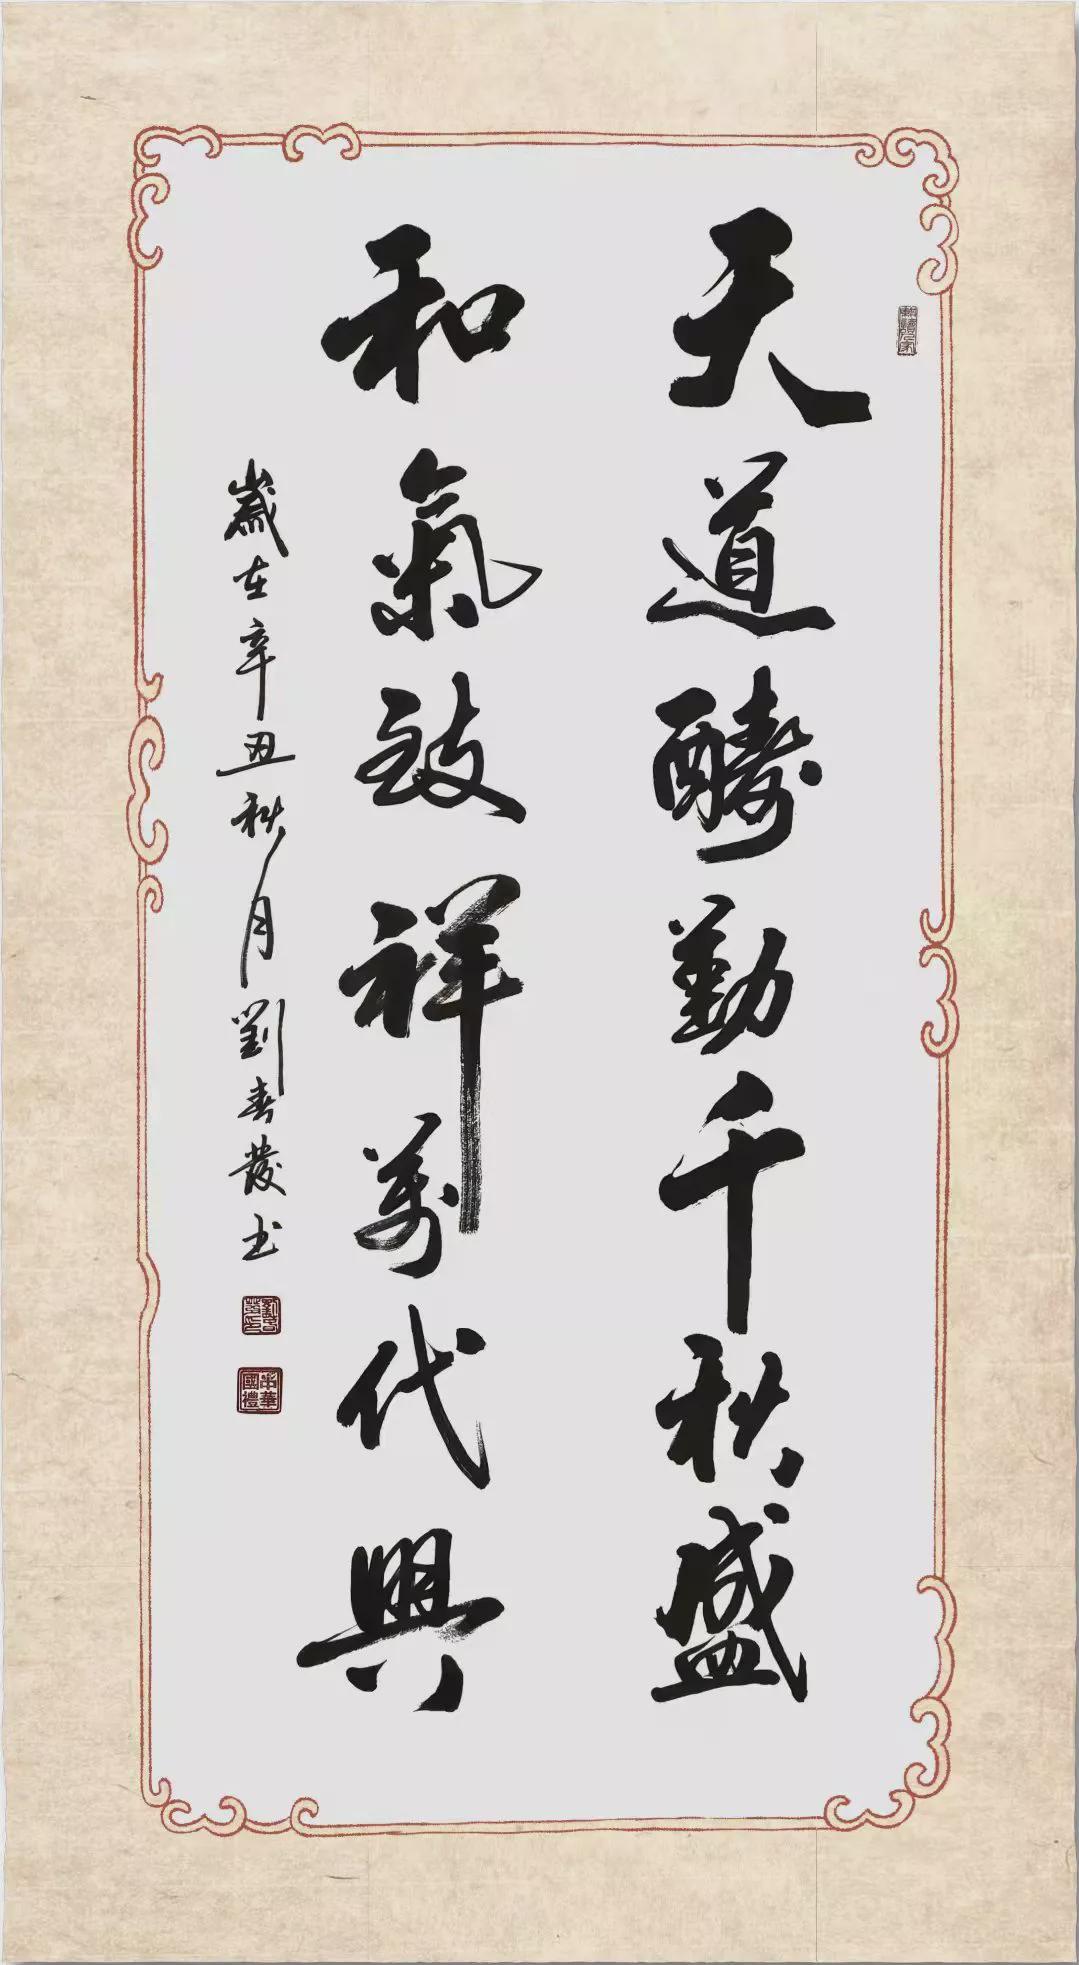 天道酬勤千秋盛
和氣致祥萬代興
歲在辛丑秋月劉春發书
中華國禮